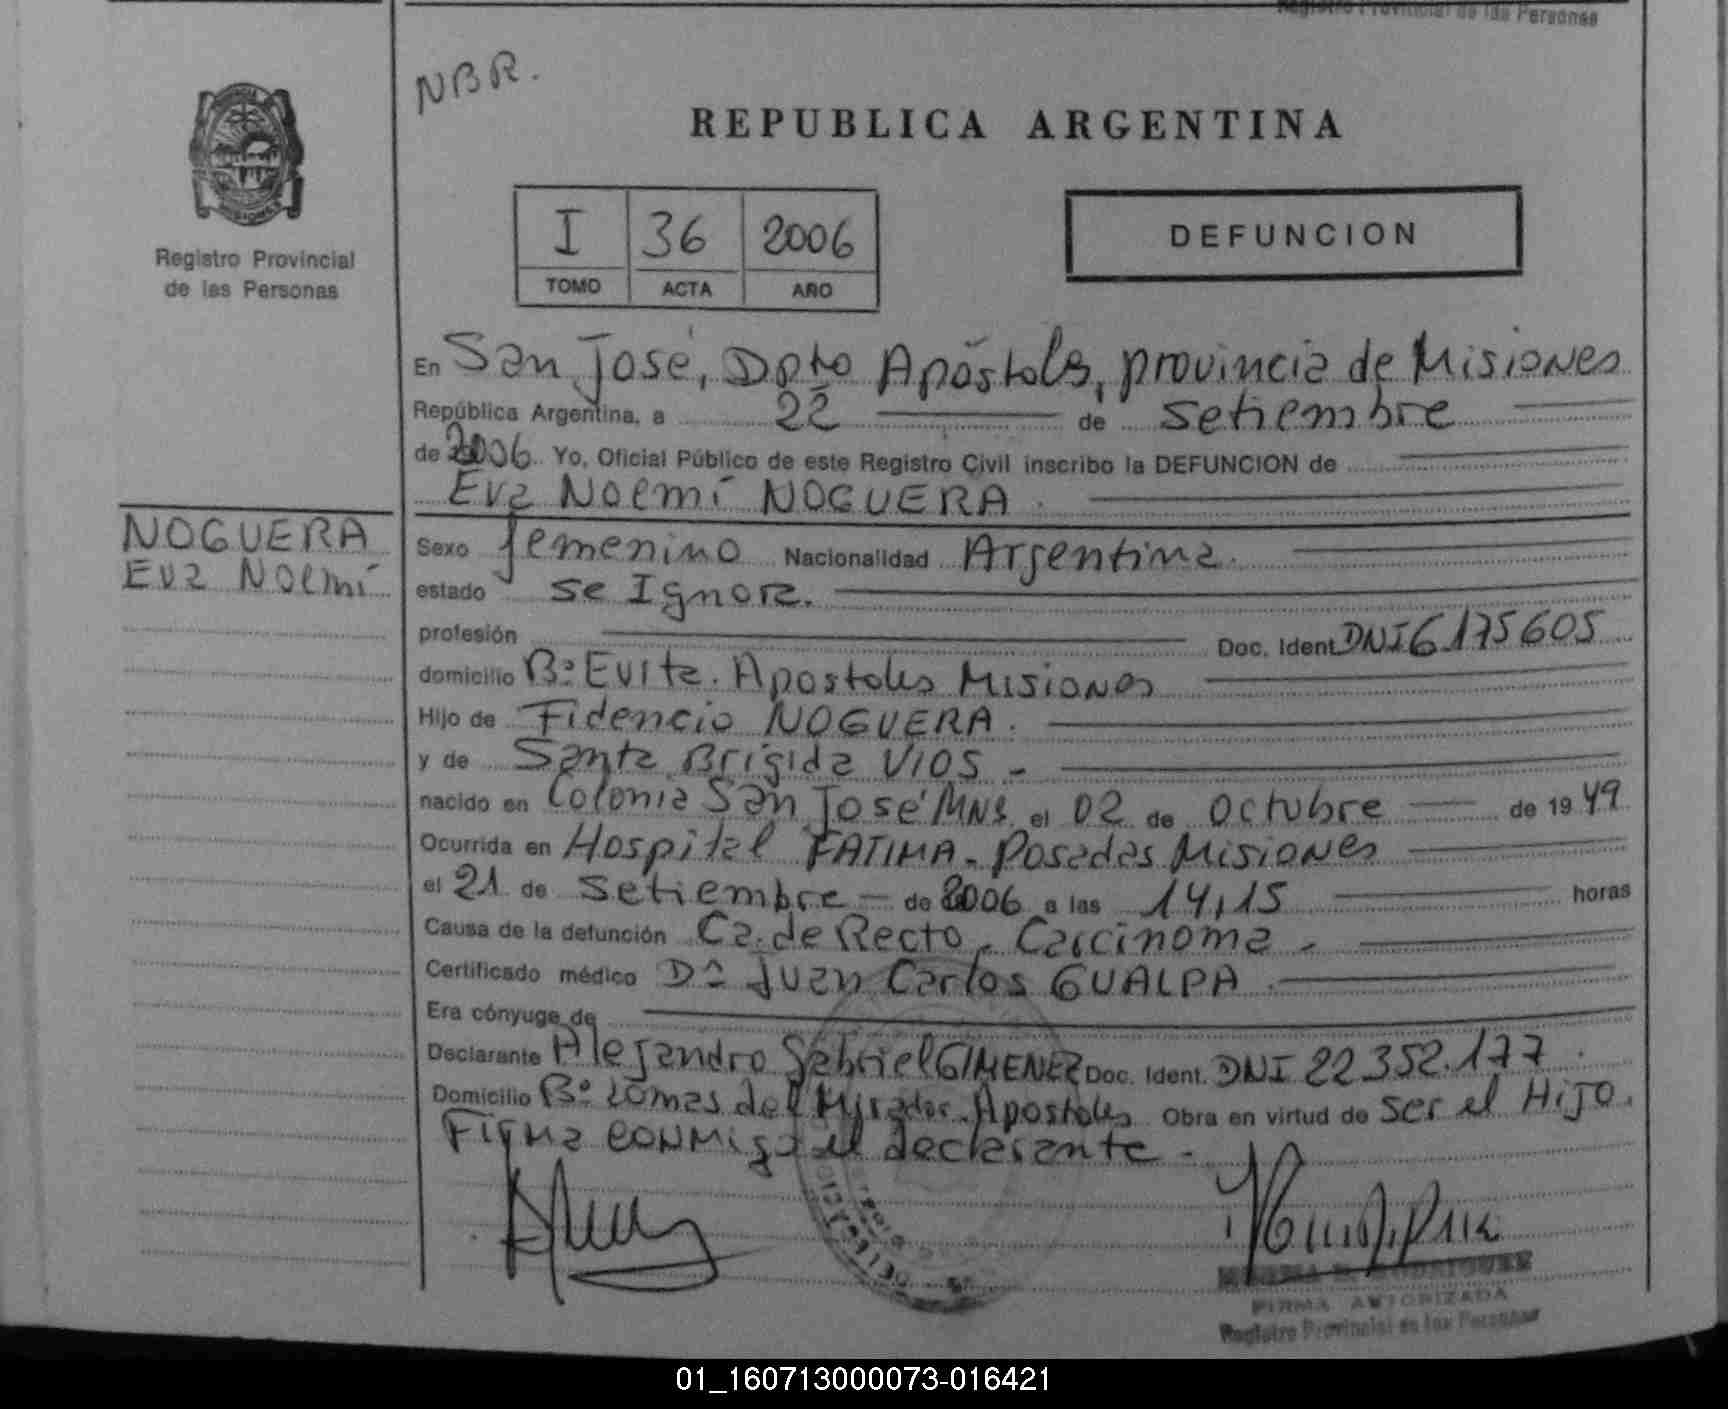 Registro Provincial de las Personas
NBR.
REPUBLICA ARGENTINA
PROVINCIA
MISIONES
Registro Provincial
de las Personas
I 36 2006
TOMO ACTA AÑO
DEFUNCION
En San José, Dpto Apóstoles, provincia de Misiones
República Argentina, a 22 de Setiembre
de 2006 Yo, Oficial Público de este Registro Civil inscribo la DEFUNCION de
Eva Noemí NOGUERA.
NOGUERA
Eva Noemí
Sexo femenino Nacionalidad Argentina.
estado se Ignora.
profesión Doc. Ident. DNI 6175605
domicilio Bº Evita. Apostoles Misiones
Hijo de Fidencio NOGUERA.
y de Santa Brígida VIOS -
nacido en Colonia San José Mns. el 02 de Octubre de 1949
Ocurrida en Hospital FATIMA - Posadas Misiones
el 21 de Setiembre - de 2006 a las 14,15 horas
Causa de la defunción Ca. de Recto - Carcinoma -
Certificado médico Dº Juan Carlos GUALPA
Era cónyuge de
Declarante Alejandro Gabriel GIMENEZ Doc. Ident. DNI 22352.177.
Domicilio Bº Lomas del Mirador - Apostoles Obra en virtud de ser el Hijo.
Firma conmigo el declarante -
RODRIGUEZ
FIRMA AUTORIZADA
Registro Provincial de las Personas
01_160713000073-016421